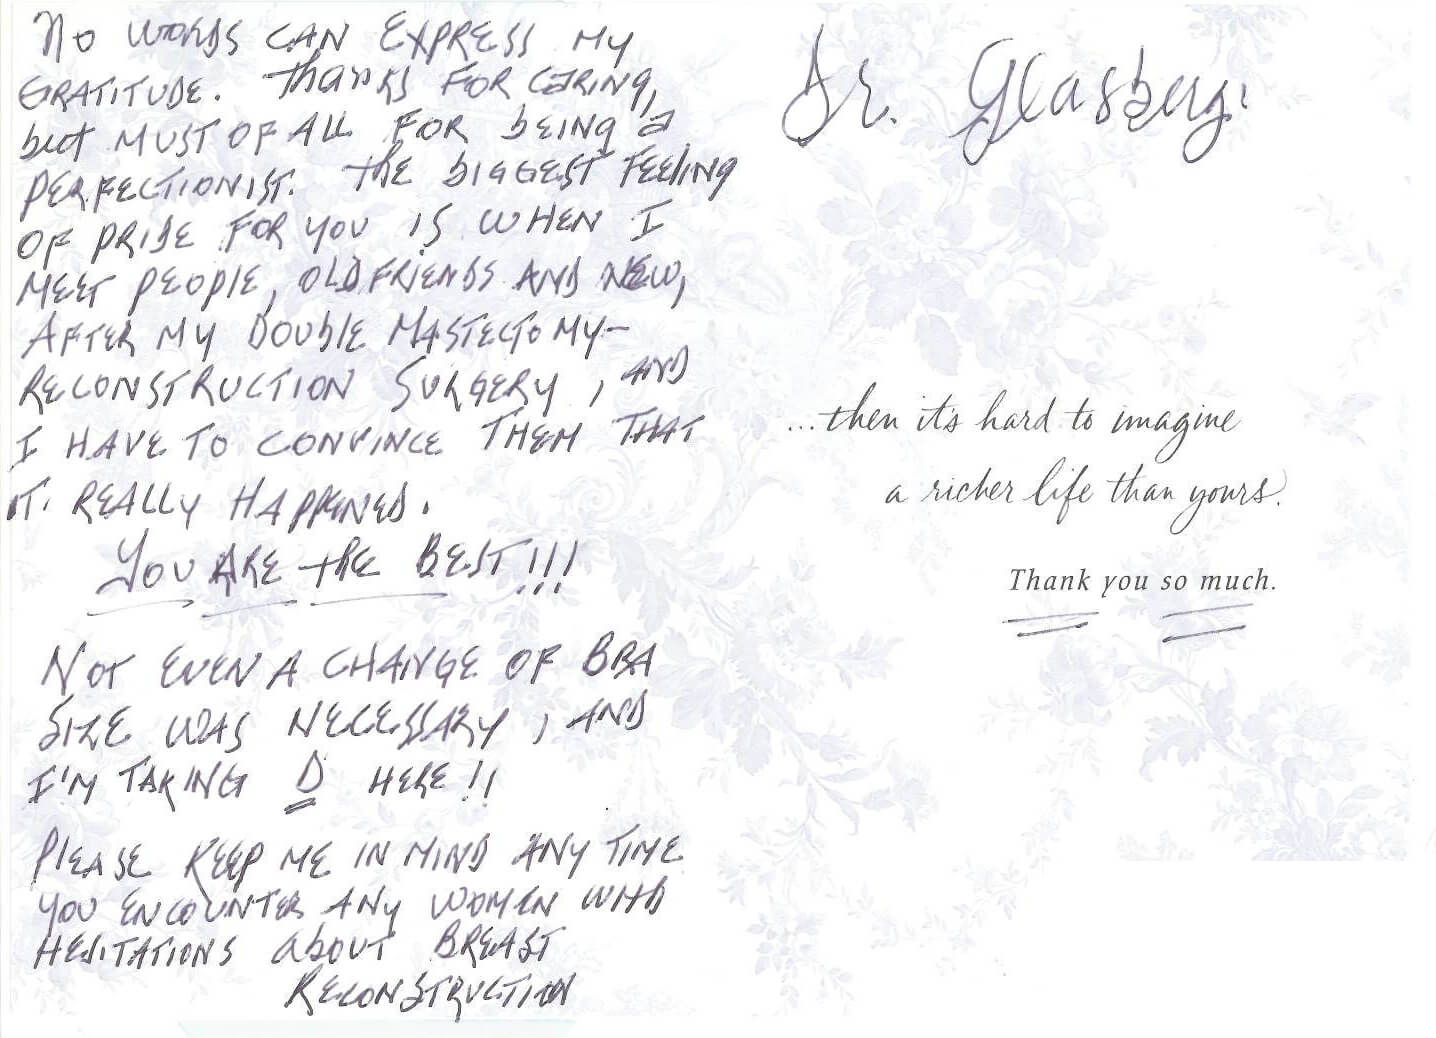 No words can express my
gratitude. Thanks for caring,
but must of all for being a
perfectionist. The biggest feeling
of pride for you is when I
meet people, old friends and new,
after my double mastectomy-
reconstruction surgery, and
I have to convince them that
it really happened.
You are the Best!!!
Not even a change of bra
size was necessary, and
I'm taking D here!!
Please keep me in mind any time
you encounter any women with
hesitations about breast
reconstruction
Dr. Glasberg:
...then it's hard to imagine
a richer life than yours.
Thank you so much.